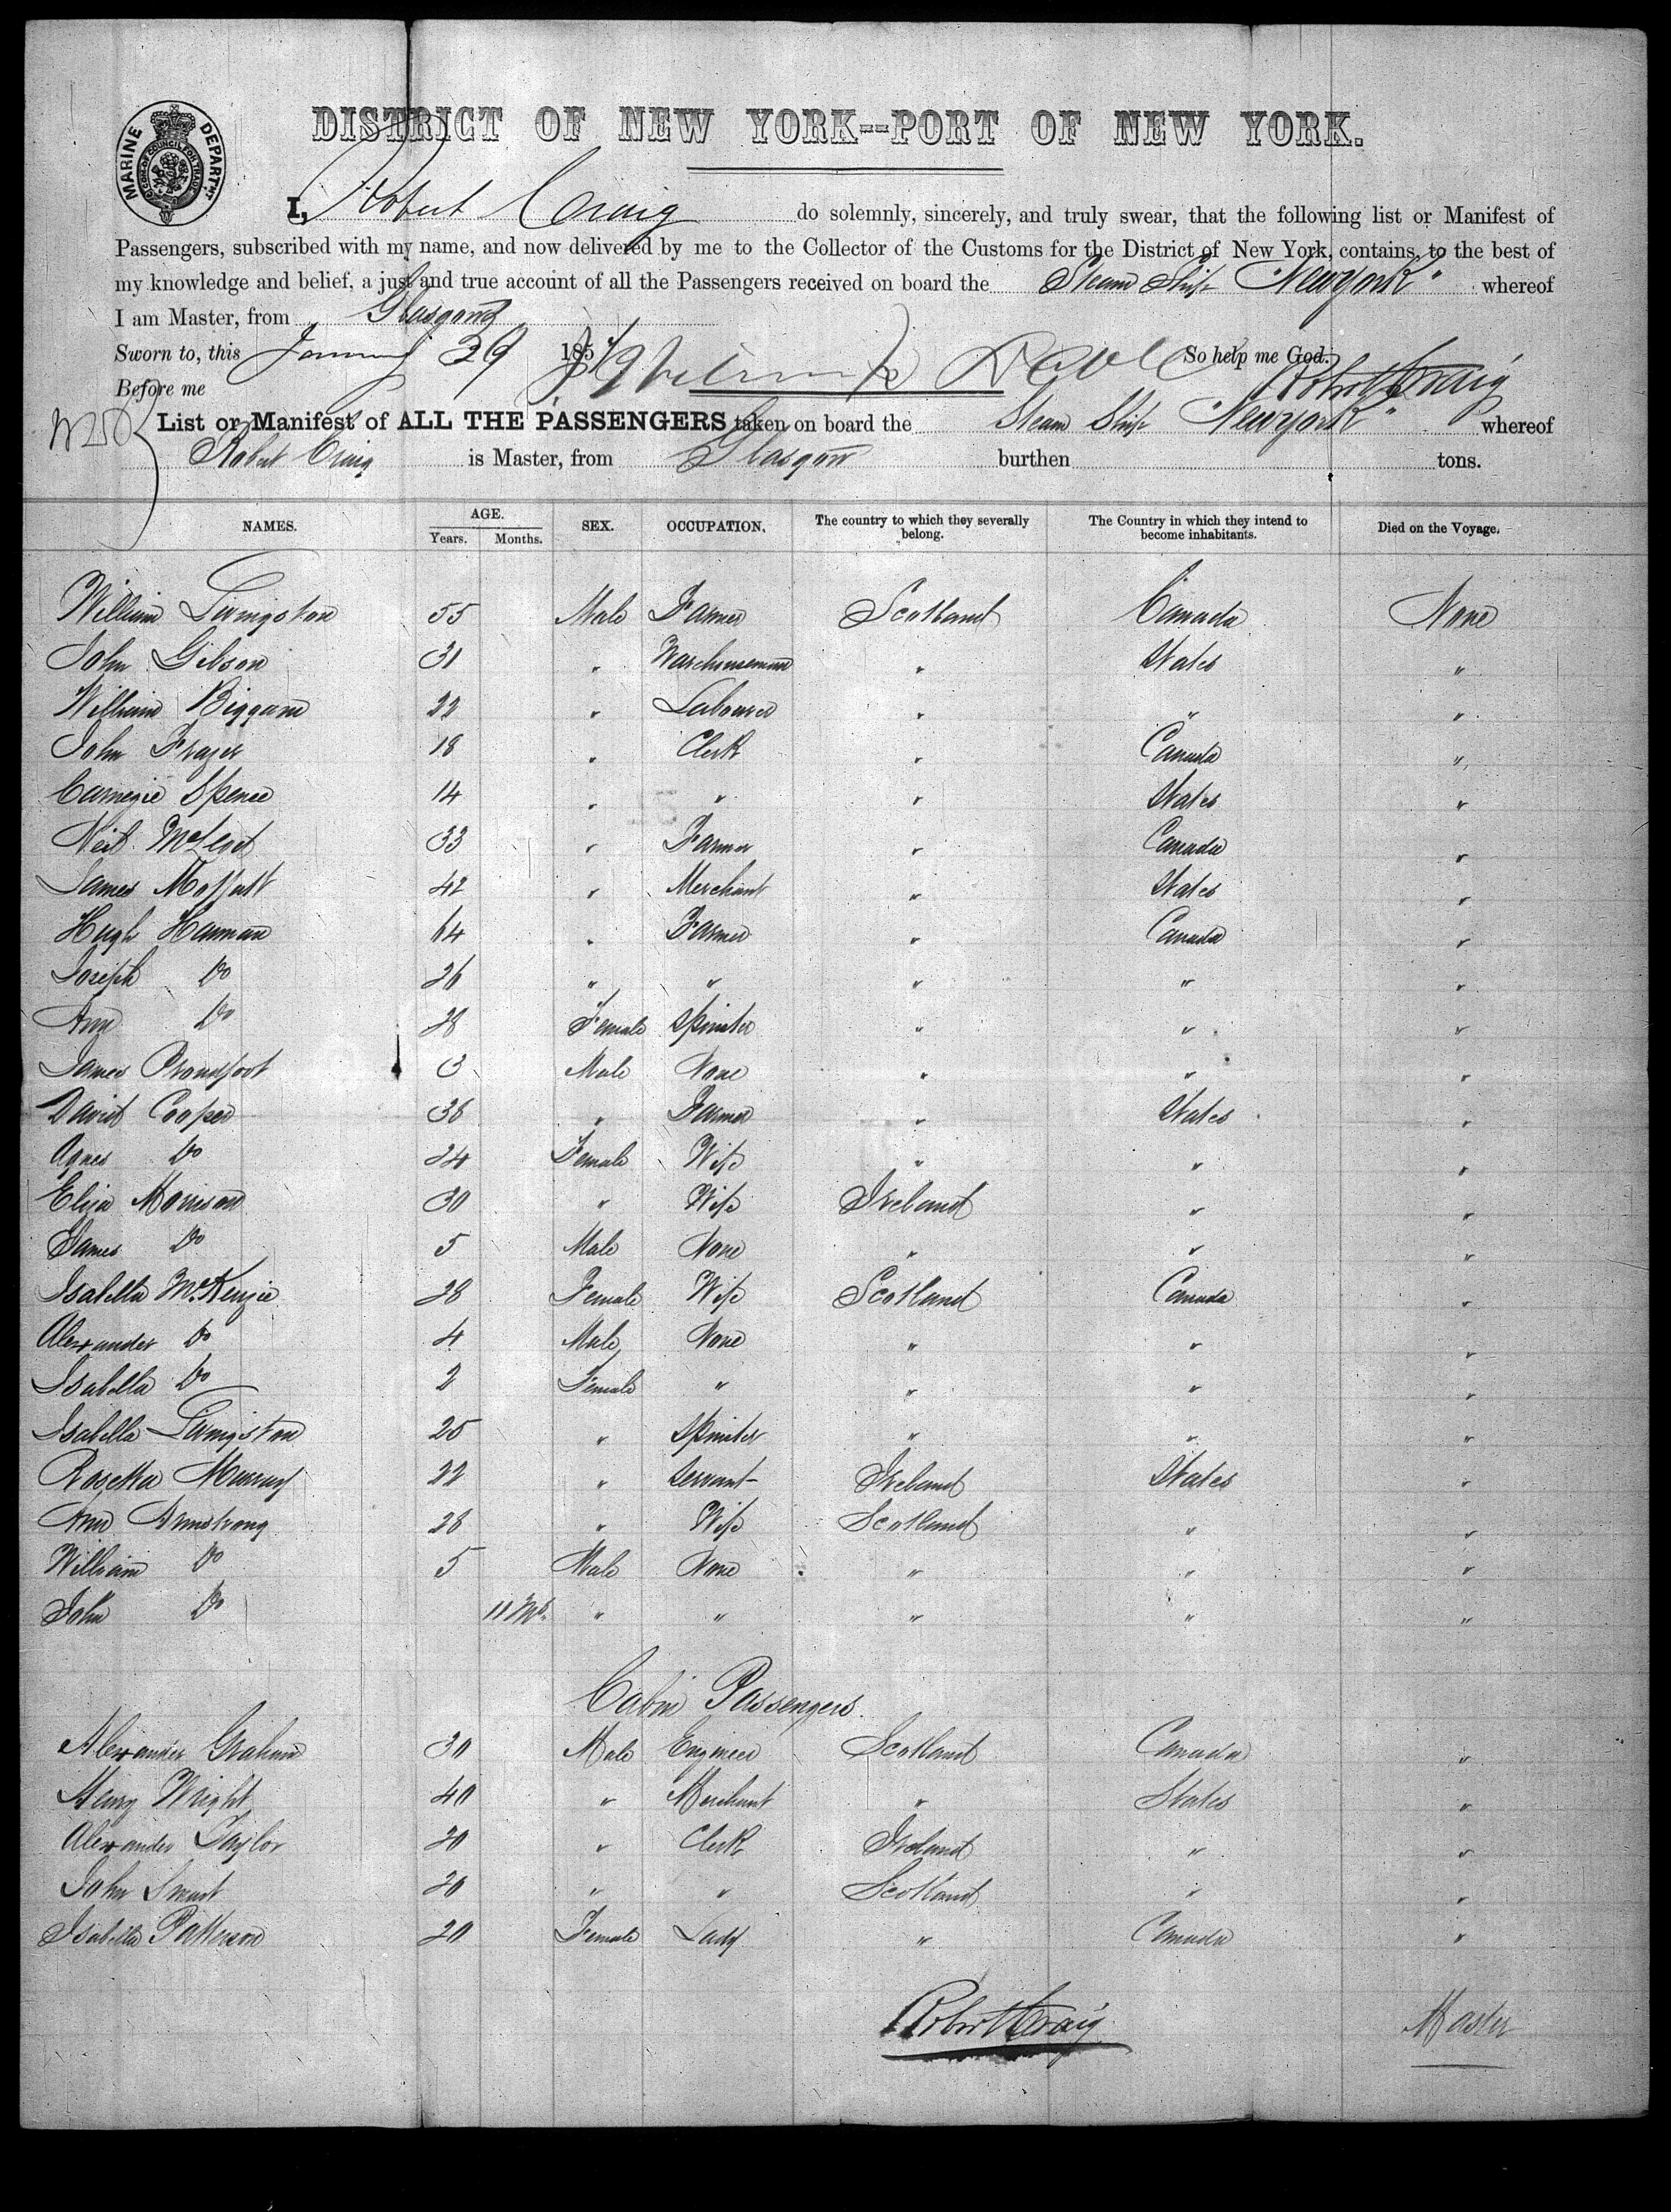 MARINE DEPARTMT
DISTRICT OF NEW YORK--PORT OF NEW YORK.
I, Robert Craig do solemnly, sincerely, and truly swear, that the following list or Manifest of
Passengers, subscribed with my name, and now delivered by me to the Collector of the Customs for the District of New York, contains, to the best of
my knowledge and belief, a just and true account of all the Passengers received on board the Steam Ship "Newyork" whereof
I am Master, from Glasgow
Sworn to, this 29 185 So help me God.
Before me Robert Craig
List or Manifest of ALL THE PASSENGERS taken on board the Steam Ship "Newyork" whereof
Robert Craig is Master, from Glasgow burthen tons.
NAMES. AGE. Years. Months. SEX. OCCUPATION. The country to which they severally belong. The Country in which they intend to become inhabitants. Died on the Voyage.
William Livingston 55 Male Farmer Scotland Canada None
John Gibson 31 " Warehouseman " States "
William Biggam 22 " Labourer " " "
John Frazer 18 " Clerk " Canada "
Carnegie Spence 14 " " " States "
Neil McLeod 33 " Farmer " Canada "
James Moffatt 42 " Merchant " States "
Hugh Harman 64 " Farmer " Canada "
Joseph Do 26 " " " " "
Ann Do 28 Female Spinster " " "
James Proudfoot 3 Male None " " "
David Cooper 38 " Farmer " States "
Agnes Do 24 Female Wife " " "
Eliza Morrison 30 " Wife Ireland " "
James Do 5 Male None " " "
Isabella McKenzie 28 Female Wife Scotland Canada "
Alexander Do 4 Male None " " "
Isabella Do 2 Female " " " "
Isabella Livingston 25 " Spinster " " "
Rosetta Murray 22 " Servant Ireland States "
Ann Armstrong 28 " Wife Scotland " "
William Do 5 Male None " " "
John Do 11 Ms. " " " " "
Cabin Passengers.
Alexander Graham 30 Male Engineer Scotland Canada "
Henry Wright 40 " Merchant " States "
Alexander Taylor 20 " Clerk Ireland " "
John Smart 20 " " Scotland " "
Isabella Patterson 20 Female Lady " Canada "
Robert Craig Master